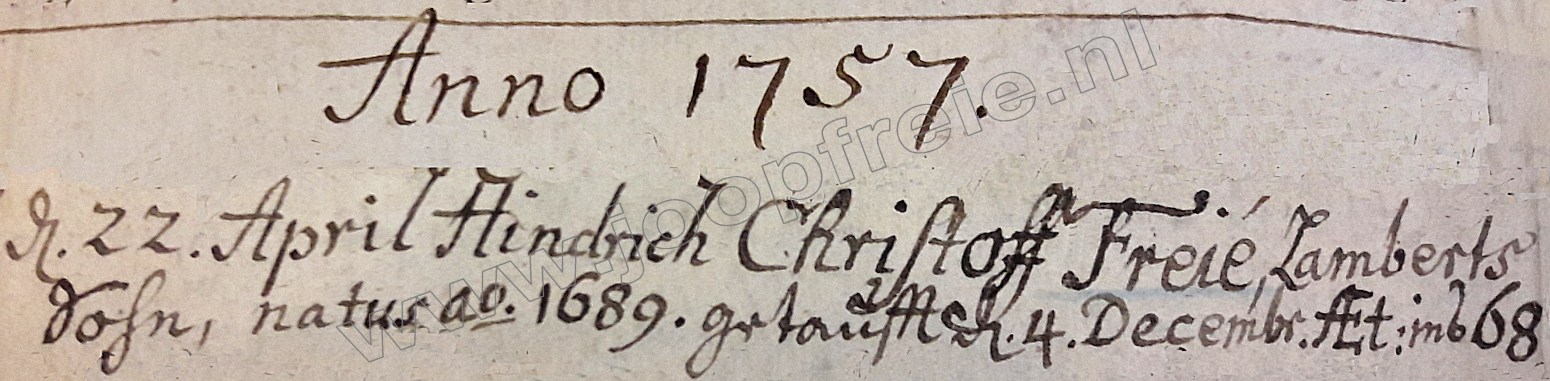 Anno 1757.
d. 22. April Hindrich Christoff Freié, Lamberts
Sohn, natus ao. 1689. getaufft d. 4. Decembr. Æt: ins 68
www.joopfreie.nl